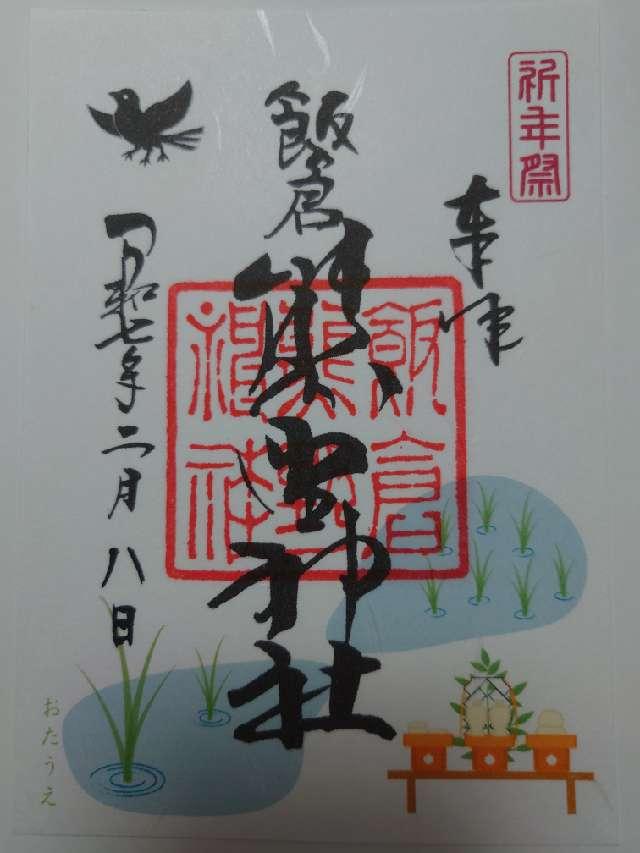 祈年祭
奉拝
飯倉
熊野神社
飯倉
熊野
神社
令和七年二月八日
おたうえ